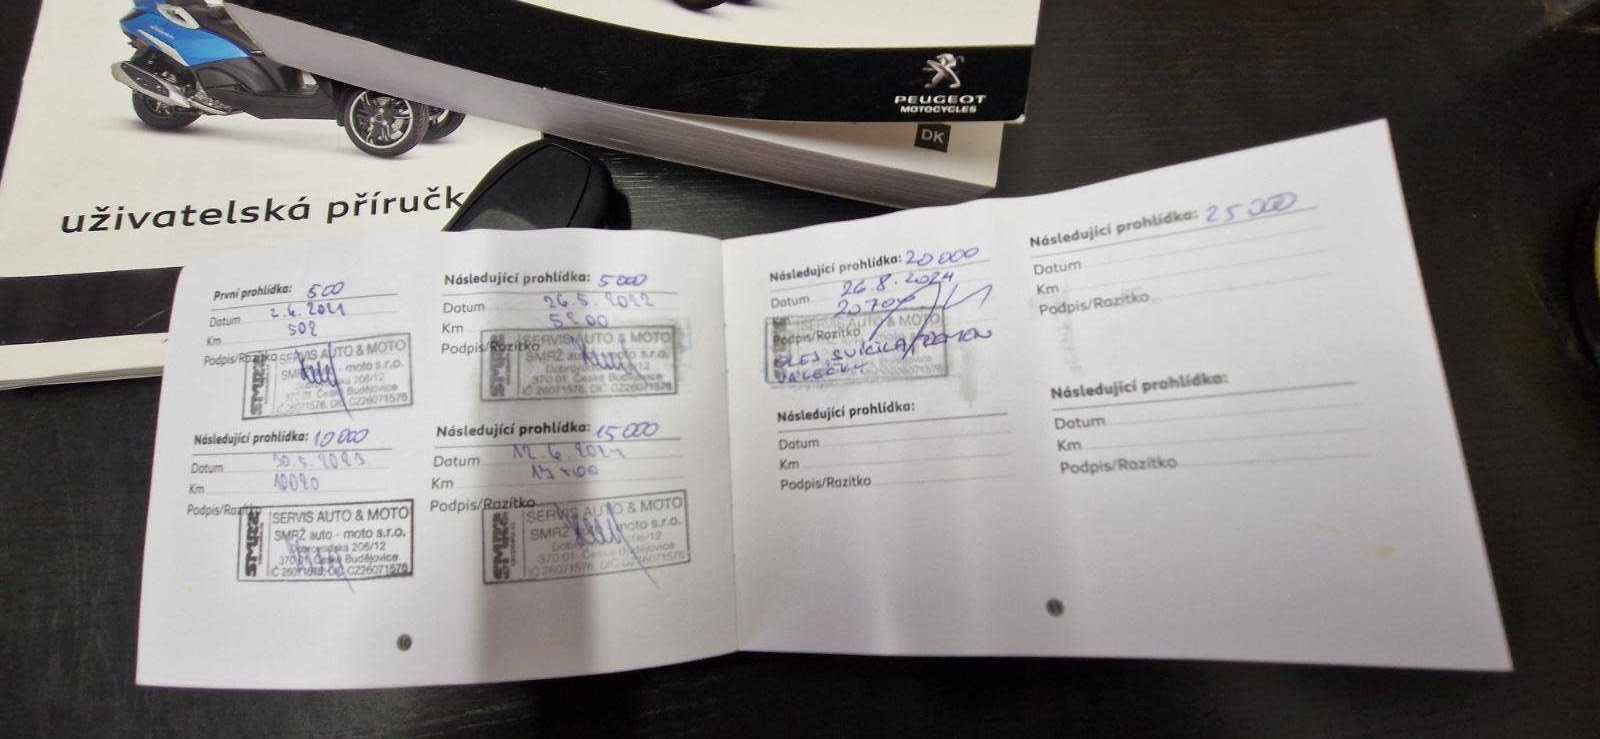 PEUGEOT
MOTOCYCLES
DK
uživatelská příručk
První prohlídka: 500
Datum 2.6.2021
Km 502
Podpis/Razítko
SERVIS AUTO & MOTO
SMRŽ auto - moto s.r.o.
206/12
370 01 České Budějovice
IČ 26071576, DIČ CZ26071576
Následující prohlídka: 5000
Datum 26.5.2022
Km 5200
Podpis/Razítko
SERVIS AUTO & MOTO
SMRŽ auto - moto s.r.o.
206/12
370 01 České Budějovice
IČ 26071576, DIČ CZ26071576
Následující prohlídka: 10 000
Datum 30.5.2023
Km 10020
Podpis/Razítko
SMRŽ
SERVIS AUTO & MOTO
SMRŽ auto - moto s.r.o.
Dobrovodská 206/12
370 01 České Budějovice
IČ 26071576, DIČ CZ26071576
Následující prohlídka: 15 000
Datum 12.6.2024
Km
Podpis/Razítko
SERVIS AUTO & MOTO
SMRŽ auto - moto s.r.o.
206/12
370 01 České Budějovice
IČ 26071576, DIČ CZ26071576
10
Následující prohlídka: 20 000
Datum 26.8.2024
Km 2070
Podpis/Razítko
SERVIS AUTO & MOTO
OLEJ, SVÍČKA, ŘEMEN
VÁLEČKY
Následující prohlídka:
Datum
Km
Podpis/Razítko
Následující prohlídka: 25 000
Datum
Km
Podpis/Razítko
Následující prohlídka:
Datum
Km
Podpis/Razítko
11